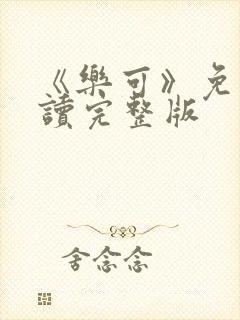 《樂可》免
讀完整版
舍念念